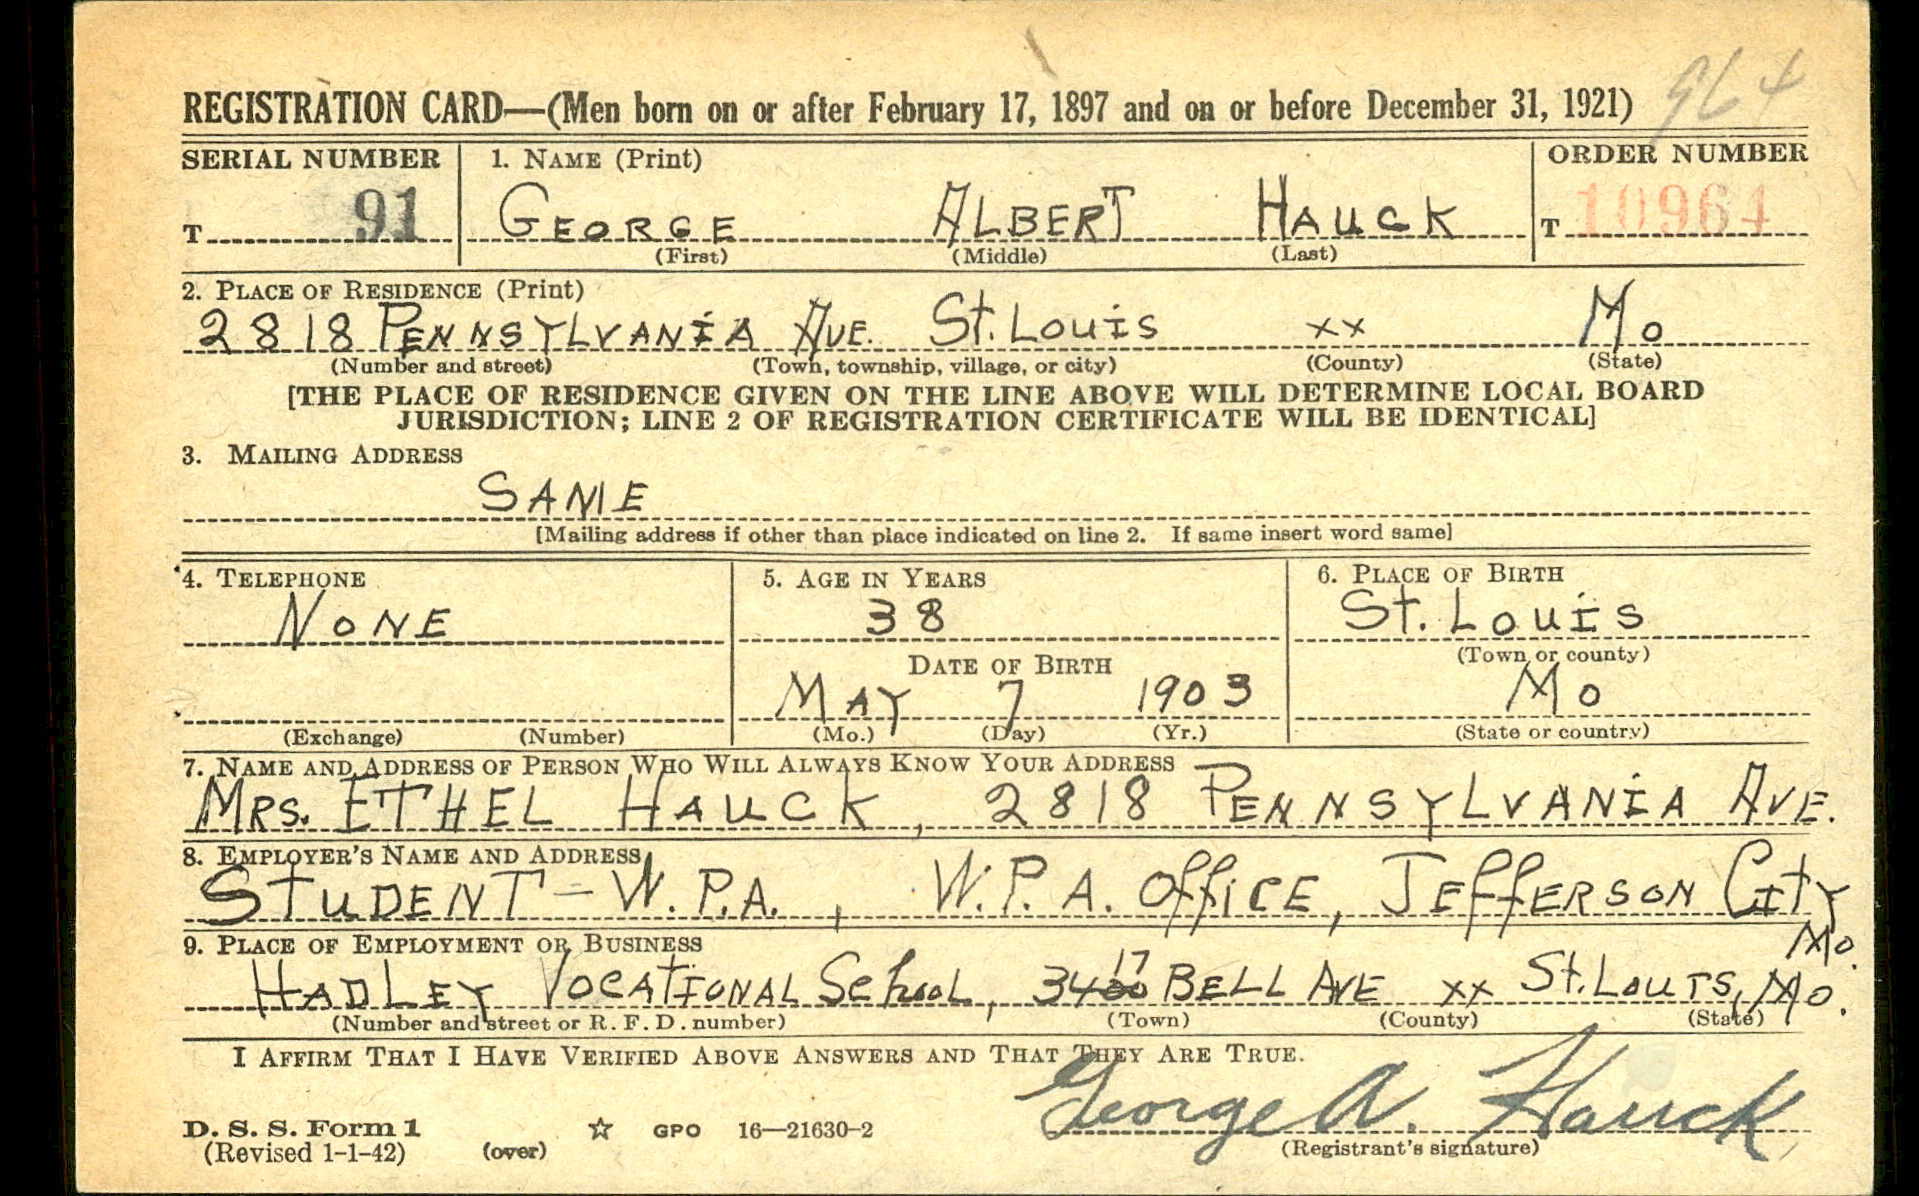 964
REGISTRATION CARD—(Men born on or after February 17, 1897 and on or before December 31, 1921)
SERIAL NUMBER 1. NAME (Print) ORDER NUMBER
T 91 GEORGE ALBERT HAUCK T 10964
(First) (Middle) (Last)
2. PLACE OF RESIDENCE (Print)
2818 PENNSYLVANIA AVE. ST. LOUIS xx MO
(Number and street) (Town, township, village, or city) (County) (State)
[THE PLACE OF RESIDENCE GIVEN ON THE LINE ABOVE WILL DETERMINE LOCAL BOARD
JURISDICTION; LINE 2 OF REGISTRATION CERTIFICATE WILL BE IDENTICAL]
3. MAILING ADDRESS
SAME
[Mailing address if other than place indicated on line 2. If same insert word same]
4. TELEPHONE 5. AGE IN YEARS 6. PLACE OF BIRTH
NONE 38 ST. LOUIS
DATE OF BIRTH (Town or county)
MAY 7 1903 MO
(Exchange) (Number) (Mo.) (Day) (Yr.) (State or country)
7. NAME AND ADDRESS OF PERSON WHO WILL ALWAYS KNOW YOUR ADDRESS
MRS. ETHEL HAUCK, 2818 PENNSYLVANIA AVE.
8. EMPLOYER'S NAME AND ADDRESS
STUDENT – W.P.A., W.P.A. OFFICE, JEFFERSON CITY
MO.
9. PLACE OF EMPLOYMENT OR BUSINESS
HADLEY VOCATIONAL SCHOOL, 3417 BELL AVE xx ST. LOUIS, MO.
(Number and street or R. F. D. number) (Town) (County) (State)
I AFFIRM THAT I HAVE VERIFIED ABOVE ANSWERS AND THAT THEY ARE TRUE.
George A. Hauck
D. S. S. Form 1 ☆ GPO 16—21630-2
(Revised 1-1-42) (over) (Registrant's signature)